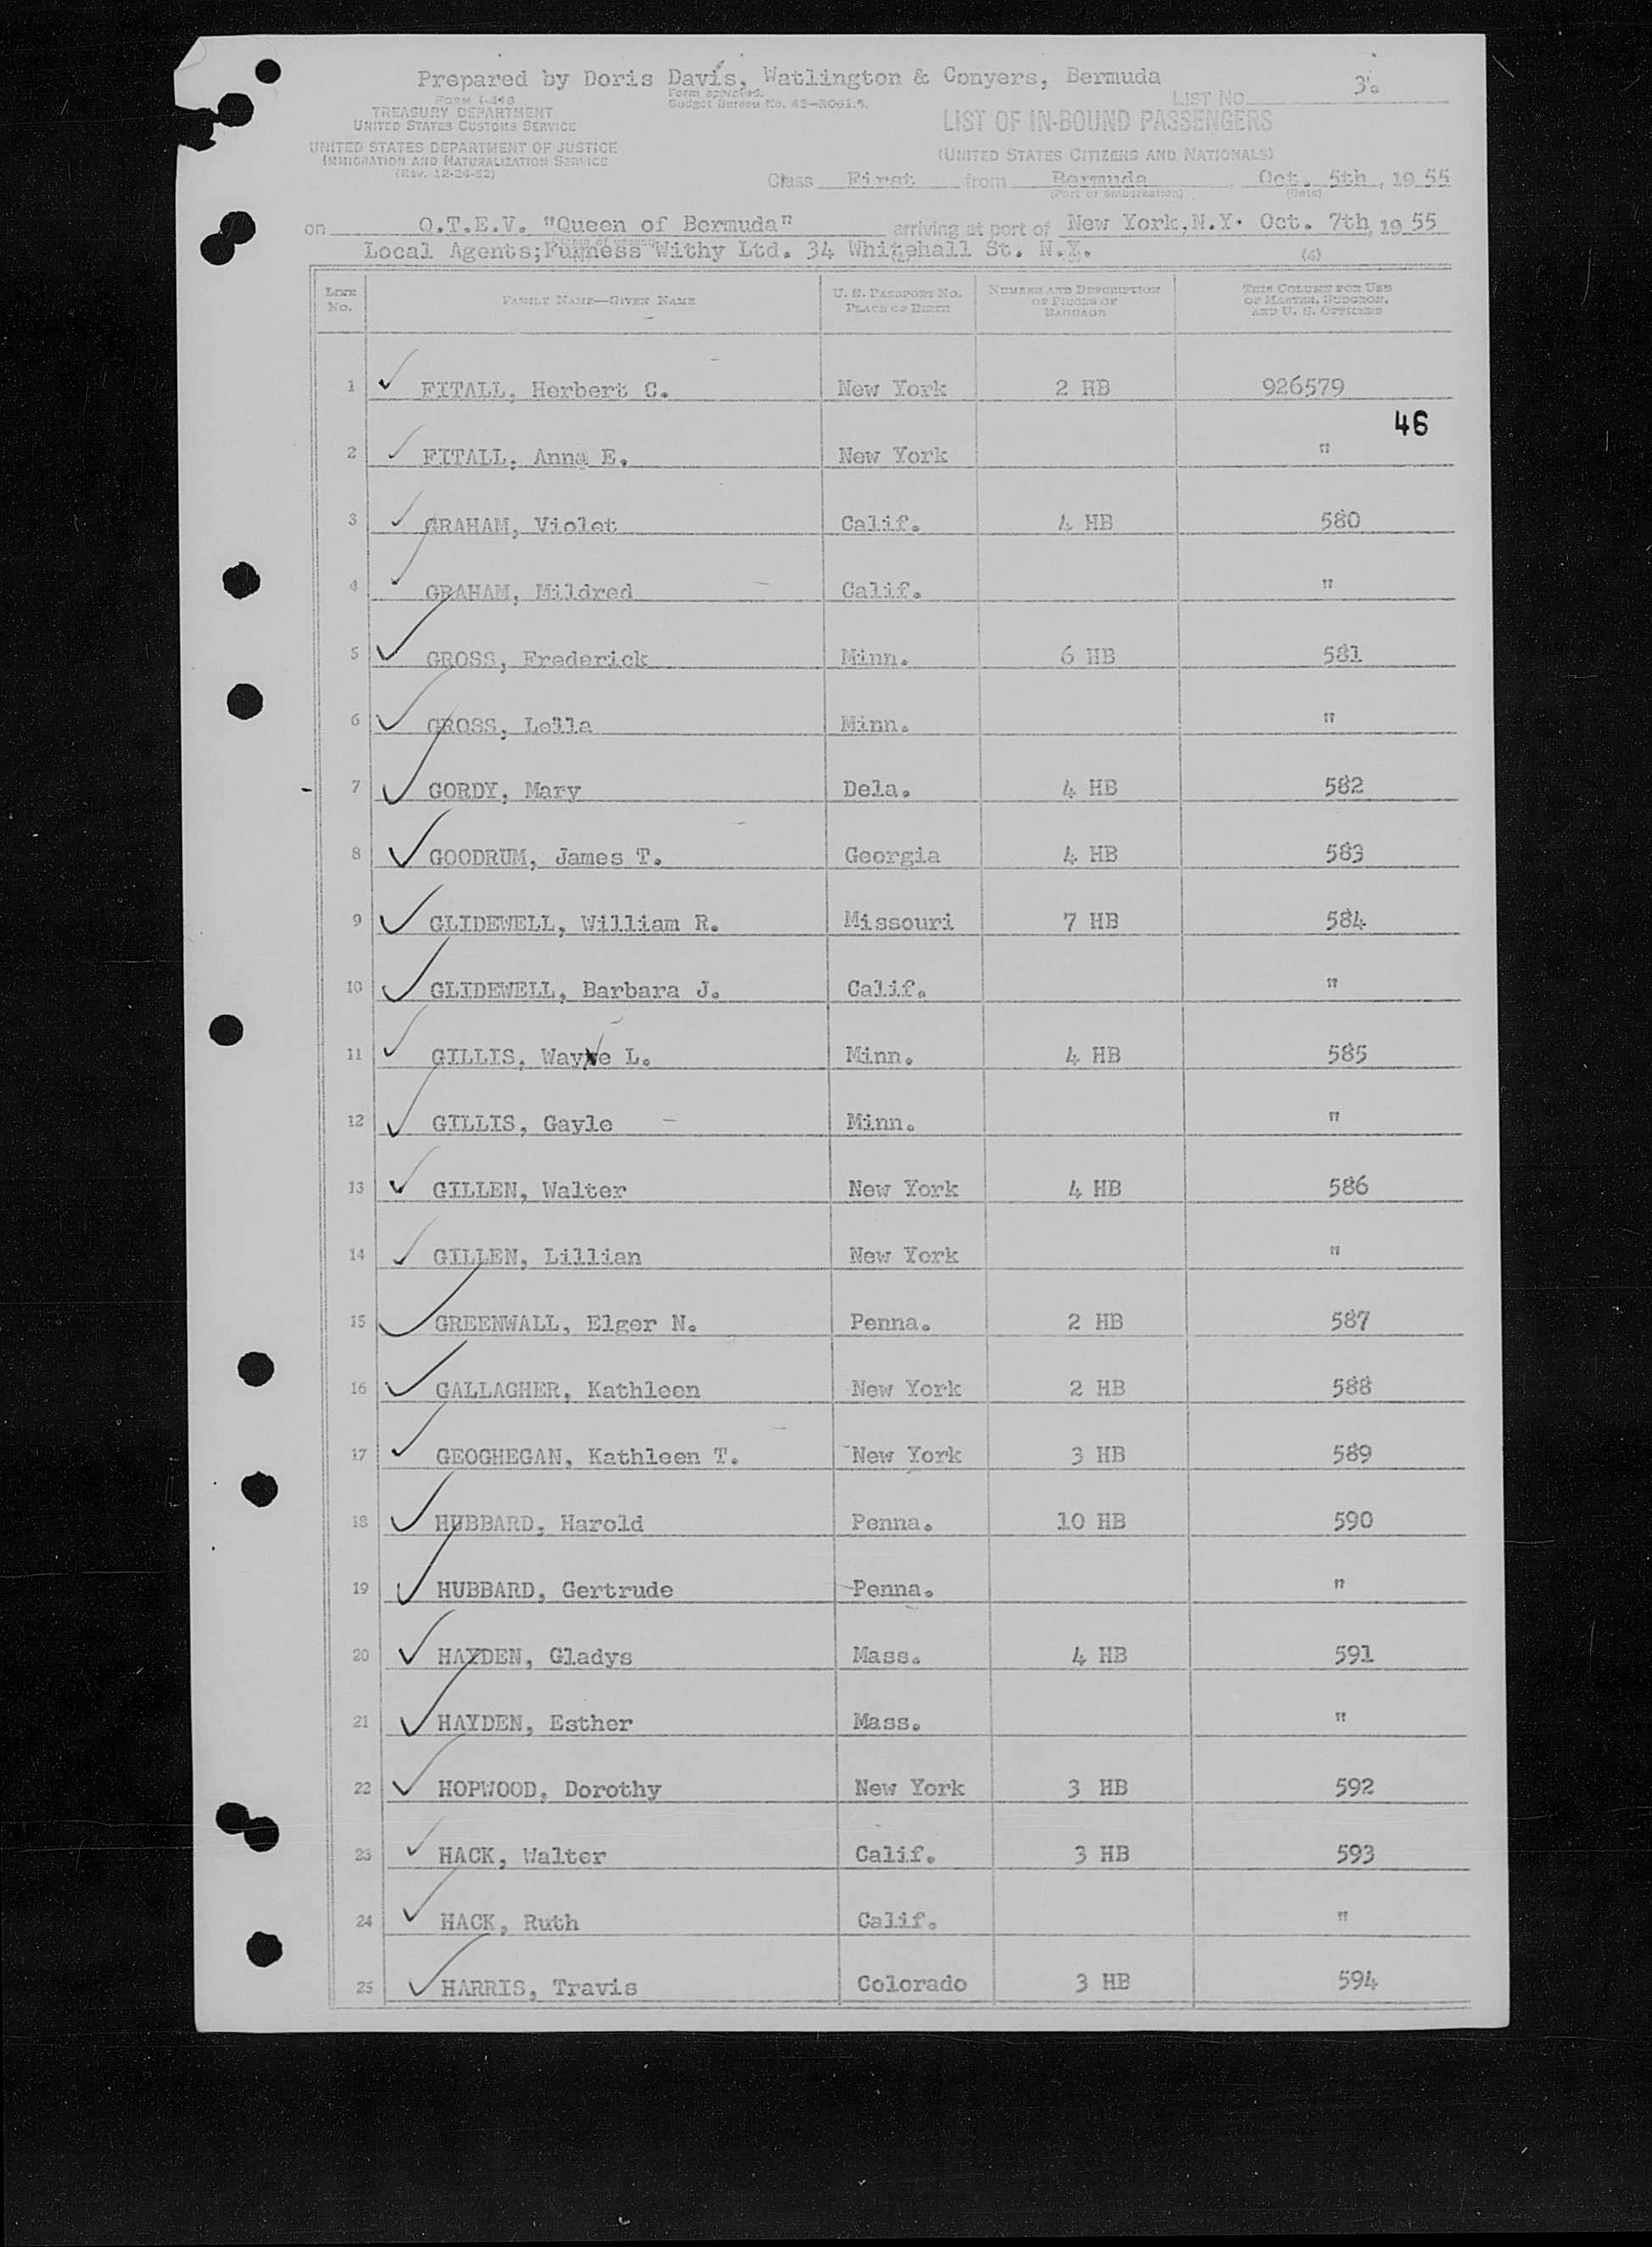 Prepared by Doris Davis, Watlington & Conyers, Bermuda
Form approved.
Budget Bureau No. 43—R061.5.
LIST No. 3.
TREASURY DEPARTMENT
UNITED STATES CUSTOMS SERVICE
UNITED STATES DEPARTMENT OF JUSTICE
IMMIGRATION AND NATURALIZATION SERVICE
(Rev. 12-24-52)
LIST OF IN-BOUND PASSENGERS
(UNITED STATES CITIZENS AND NATIONALS)
Class First from Bermuda, Oct. 5th, 1955
(Port of embarkation) (Date)
on Q.T.E.V. "Queen of Bermuda" arriving at port of New York, N.Y. Oct. 7th, 1955
Local Agents; Furness Withy Ltd. 34 Whitehall St. N.Y. (4)
LINE No. FAMILY NAME—GIVEN NAME U. S. PASSPORT NO. PLACE OF BIRTH NUMBER AND DESCRIPTION OF PIECES OF BAGGAGE THIS COLUMN FOR USE OF MASTER, SURGEON, AND U. S. OFFICERS
1 FITALL, Herbert C. New York 2 HB 926579
46
2 FITALL, Anna E. New York "
3 GRAHAM, Violet Calif. 4 HB 580
4 GRAHAM, Mildred Calif. "
5 GROSS, Frederick Minn. 6 HB 581
6 GROSS, Leila Minn. "
7 GORDY, Mary Dela. 4 HB 582
8 GOODRUM, James T. Georgia 4 HB 583
9 GLIDEWELL, William R. Missouri 7 HB 584
10 GLIDEWELL, Barbara J. Calif. "
11 GILLIS, Wayne L. Minn. 4 HB 585
12 GILLIS, Gayle Minn. "
13 GILLEN, Walter New York 4 HB 586
14 GILLEN, Lillian New York "
15 GREENWALL, Elger N. Penna. 2 HB 587
16 GALLAGHER, Kathleen New York 2 HB 588
17 GEOGHEGAN, Kathleen T. New York 3 HB 589
18 HUBBARD, Harold Penna. 10 HB 590
19 HUBBARD, Gertrude Penna. "
20 HAYDEN, Gladys Mass. 4 HB 591
21 HAYDEN, Esther Mass. "
22 HOPWOOD, Dorothy New York 3 HB 592
23 HACK, Walter Calif. 3 HB 593
24 HACK, Ruth Calif. "
25 HARRIS, Travis Colorado 3 HB 594